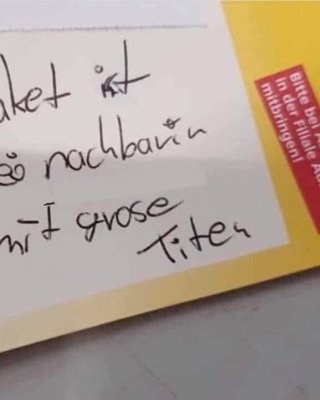 aket ist
nachbarin
mit grose
Titen
Bitte bei A
in der Filiale Au
mitbringen!